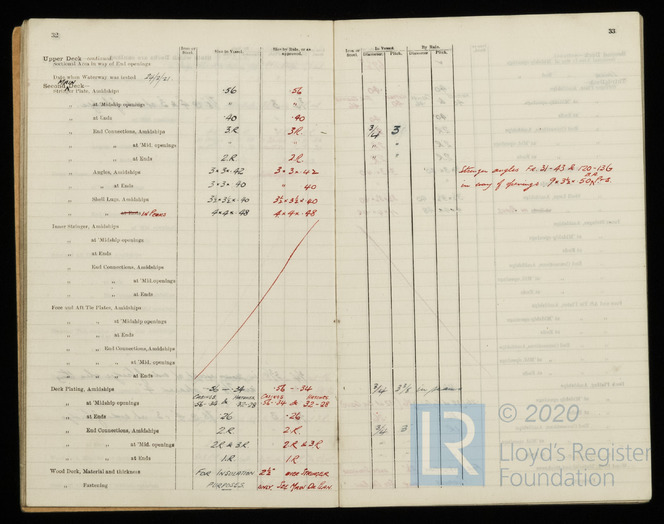 32
33
Iron or Steel. Size in Vessel. Size by Rule, or as approved. Iron or Steel. In Vessel By Rule.
Diameter. Pitch. Diameter. Pitch.
Upper Deck—continued.
Sectional Area in way of End openings
Date when Waterway was tested 24/2/21
MAIN
Second Deck—
Stringer Plate, Amidships ·56 ·56
„ at 'Midship openings „ „
„ at Ends ·40 ·40
„ End Connections, Amidships 3R 3R. 3/4 3
„ „ at 'Mid. openings „ „ „ „
„ „ at Ends 2R 2R
„ Angles, Amidships 3×3×·42 3×3×·42 Stronger angles Fr. 31-43 & 120-136
„ „ at Ends 3×3×·40 „ 40 in way of openings 9×3½×·50
„ Shell Lugs, Amidships 3½×3½×·40 3½×3½×·40
„ „ in Peaks 4×4×·48 4×4×·48
Inner Stringer, Amidships
„ at 'Midship openings
„ at Ends
„ End Connections, Amidships
„ „ at 'Mid. openings
„ „ at Ends
Fore and Aft Tie Plates, Amidships
„ „ at 'Midship openings
„ „ at Ends
„ „ End Connections, Amidships
„ „ „ at 'Mid. openings
„ „ „ at Ends
Deck Plating, Amidships ·36 – ·34 ·36 – ·34 3/4 3⅛
„ at 'Midship openings
„ at Ends ·26 ·26
„ End Connections, Amidships 2R 2R 3/4 3
„ „ at 'Mid. openings 2R & 3R 2R & 3R
„ „ at Ends 1R 1R
Wood Deck, Material and thickness FOR INSULATION 2½"
„ Fastening PURPOSES
LR
© 2020
Lloyd's Register
Foundation